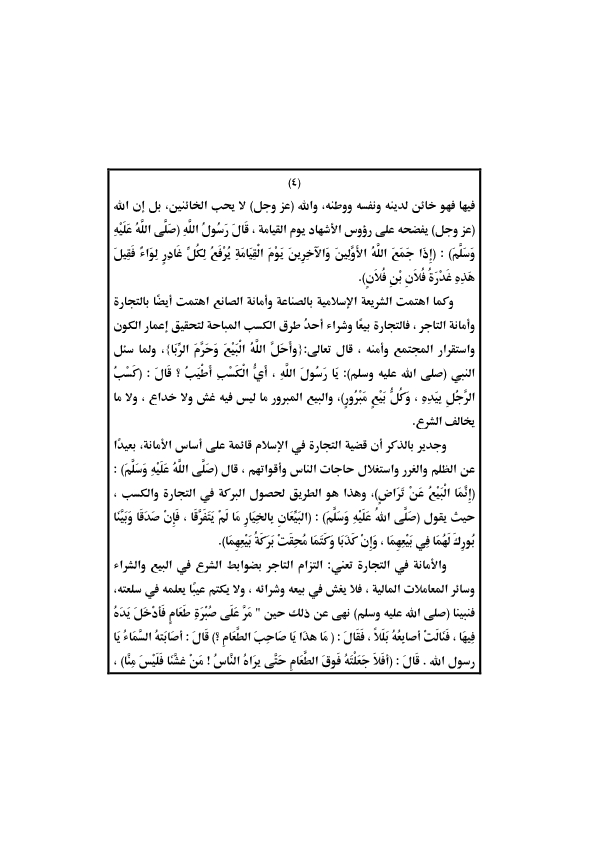 (٤)
فيها فهو خائن لدينه ونفسه ووطنه، والله (عز وجل) لا يحب الخائنين، بل إن الله
(عز وجل) يفضحه على رؤوس الأشهاد يوم القيامة ، قَالَ رَسُولُ اللَّهِ (صَلَّى اللَّهُ عَلَيْهِ
وَسَلَّمَ) : (إِذَا جَمَعَ اللَّهُ الأَوَّلِينَ وَالآخِرِينَ يَوْمَ الْقِيَامَةِ يُرْفَعُ لِكُلِّ غَادِرٍ لِوَاءٌ فَقِيلَ
هَذِهِ غَدْرَةُ فُلاَنِ بْنِ فُلاَنٍ).
وكما اهتمت الشريعة الإسلامية بالصناعة وأمانة الصانع اهتمت أيضًا بالتجارة
وأمانة التاجر ، فالتجارة بيعًا وشراء أحدُ طرق الكسب المباحة لتحقيق إعمار الكون
واستقرار المجتمع وأمنه ، قال تعالى:{وأَحَلَّ اللَّهُ الْبَيْعَ وَحَرَّمَ الرِّبَا}، ولما سئل
النبي (صلى الله عليه وسلم): يَا رَسُولَ اللَّهِ ، أَيُّ الْكَسْبِ أَطْيَبُ ؟ قَالَ : (كَسْبُ
الرَّجُلِ بِيَدِهِ ، وَكُلُّ بَيْعٍ مَبْرُورٍ)، والبيع المبرور ما ليس فيه غش ولا خداع ، ولا ما
يخالف الشرع.
وجدير بالذكر أن قضية التجارة في الإسلام قائمة على أساس الأمانة، بعيدًا
عن الظلم والغرر واستغلال حاجات الناس وأقواتهم ، قال (صَلَّى اللَّهُ عَلَيْهِ وَسَلَّمَ) :
(إِنَّمَا الْبَيْعُ عَنْ تَرَاضٍ)، وهذا هو الطريق لحصول البركة في التجارة والكسب ،
حيث يقول (صَلَّى اللهُ عَلَيْهِ وَسَلَّمَ) : (البَيِّعَانِ بِالخِيَارِ مَا لَمْ يَتَفَرَّقَا ، فَإِنْ صَدَقَا وَبَيَّنَا
بُورِكَ لَهُمَا فِي بَيْعِهِمَا ، وَإِنْ كَذَبَا وَكَتَمَا مُحِقَتْ بَرَكَةُ بَيْعِهِمَا).
والأمانة في التجارة تعني: التزام التاجر بضوابط الشرع في البيع والشراء
وسائر المعاملات المالية ، فلا يغش في بيعه وشرائه ، ولا يكتم عيبًا يعلمه في سلعته،
فنبينا (صلى الله عليه وسلم) نهى عن ذلك حين " مَرَّ عَلَى صُبْرَةِ طَعَامٍ فَأَدْخَلَ يَدَهُ
فِيهَا ، فَنَالَتْ أصابِعُهُ بَلَلاً ، فَقَالَ : ( مَا هذَا يَا صَاحِبَ الطَّعَامِ ؟) قَالَ : أصَابَتهُ السَّمَاءُ يَا
رسول الله . قَالَ : (أفَلاَ جَعَلْتَهُ فَوقَ الطَّعَامِ حَتَّى يرَاهُ النَّاسُ ! مَنْ غشَّنَا فَلَيْسَ مِنَّا) ،